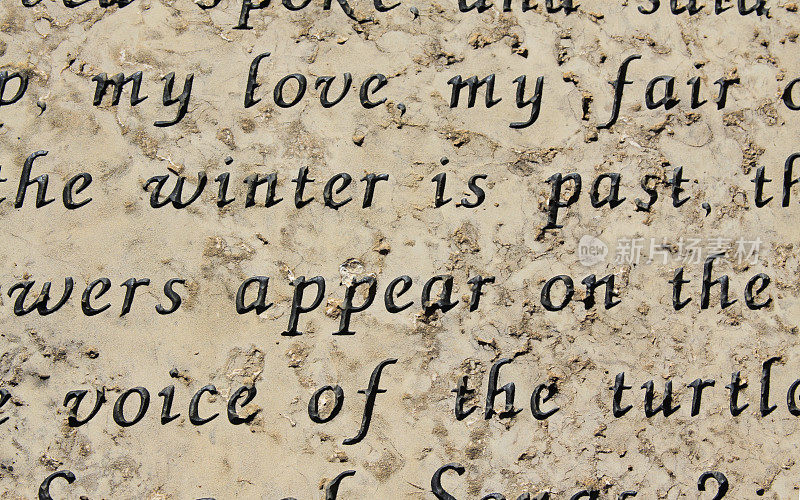 spoke and said
p, my love, my fair o
the winter is past, th
owers appear on the
e voice of the turtle
Song of Songs 2
新片场